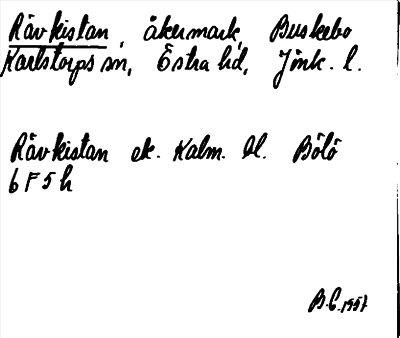 Rävkistan, åkermark, Buskebo
Karlstorps sn, Östra hd, Jönk. l.
Rävkistan ek. Kalm. bl. Bölö
6 F 5 h
B.C. 1957